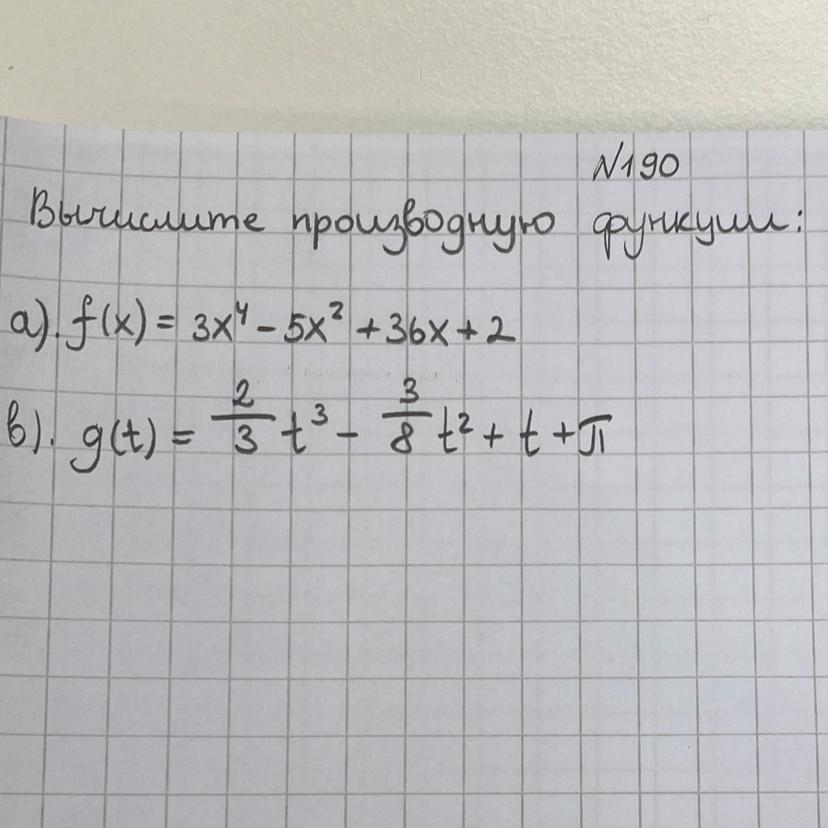 N190
Вычислите производную функции:
а). f(x) = 3x⁴ - 5x² + 36x + 2
в). g(t) = 2/3 t³ - 3/8 t² + t + π